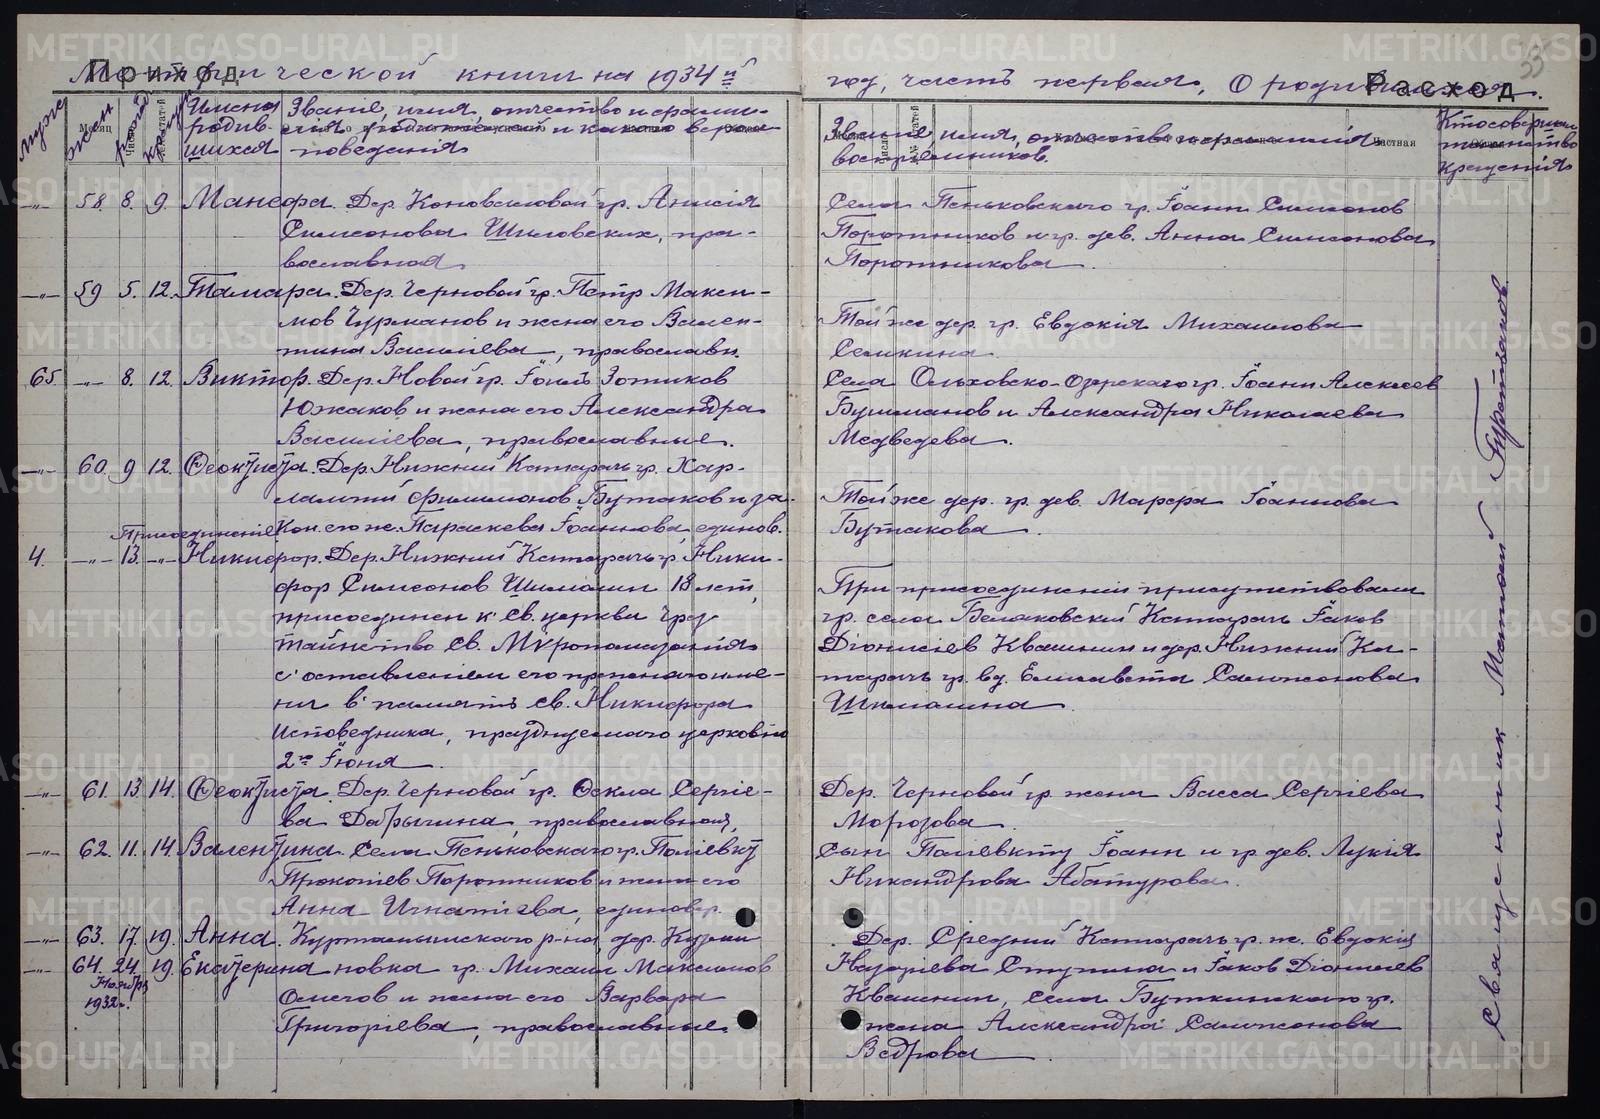 Метрической книги на 1934й год, часть первая, О родившихся.
Приход
Расход
35
Муж.
жен
рожд.
крещ.
Имена родив-
шихся
Званіе, имя, отчество и фами-
лія родителей и какого веро
поведанія
Званіе, имя, отчество и фамилія
воспріемников.
Частная
Кто совершал
таинство
крещенія
—"— 58. 8. 9. Манефа. Дер. Коноваловой гр. Анисія
Симеонова Шиловских, пра-
вославная
Села Пеньковскаго гр. Іоанн Симеонов
Поротников и гр. дев. Анна Симеонова
Поротникова.
—"— 59 5. 12. Тамара. Дер. Черновой гр. Петр Макси-
мов Чурманов и жена его Вален-
тина Василіева, православн.
Той же дер. гр. Евдокія Михаилова
Семкина.
65. —"— 8. 12. Виктор. Дер. Новой гр. Іоиль Зотиков
Южаков и жена его Александра
Василіева, православные.
Села Ольховско-Озерскаго гр. Іоанн Алексеев
Бушманов и Александра Николаева
Медведева.
—"— 60. 9 12. Феоктиста. Дер. Нижний Катарач гр. Хар-
лампий Филимонов Бутаков и за-
кон. его ж. Параскева Іоаннова, единов.
Той же дер. гр. дев. Марфа Іоаннова
Бутакова.
Присоединеніе
4. —"— 13. —"— Никифор. Дер. Нижний Катарач гр. Ники-
фор Симеонов Шималин 18 лет,
присоединен к св. церкви чрез
таинство св. Мѵропомазанія
с оставленіем его прежняго име-
ни в память св. Никифора
Исповедника, празднуемаго церковію
2го Іюня.
При присоединении присутствовали
гр. села Беляковский Катарач Іаков
Діонисіев Квашнин и дер. Нижний Ка-
тарач гр. вд. Елисавета Сампсонова
Шималина.
—"— 61. 13. 14. Феоктиста. Дер. Черновой гр. Фекла Сергіе-
ва Дабрыгина, православная,
Дер. Черновой гр. жена Васса Сергіева
Морозова.
—"— 62. 11. 14. Валентина. Села Пеньковскаго гр. Поліевкт
Прокопіев Поротников и жена его
Анна Игнатіева, единовер.
Сын Поліевкту Іоанн и гр. дев. Лукія
Никандрова Абатурова.
—"— 63. 17. 19. Анна. Куртамышскаго р-на, дер. Кузми
—"— 64. 24. 19. Екатерина новка гр. Михаил Максимов
Ноября
1932г.
Осипов и жена его Варвара
Григоріева, православные.
Дер. Средний Катарач гр. ж. Евдокія
Назаріева Ступина и Іаков Діонисіев
Квашнин, села Буткинскаго гр.
жена Александра Сампсонова
Ведрова.
Священник Матфей
METRIKI.GASO-URAL.RU